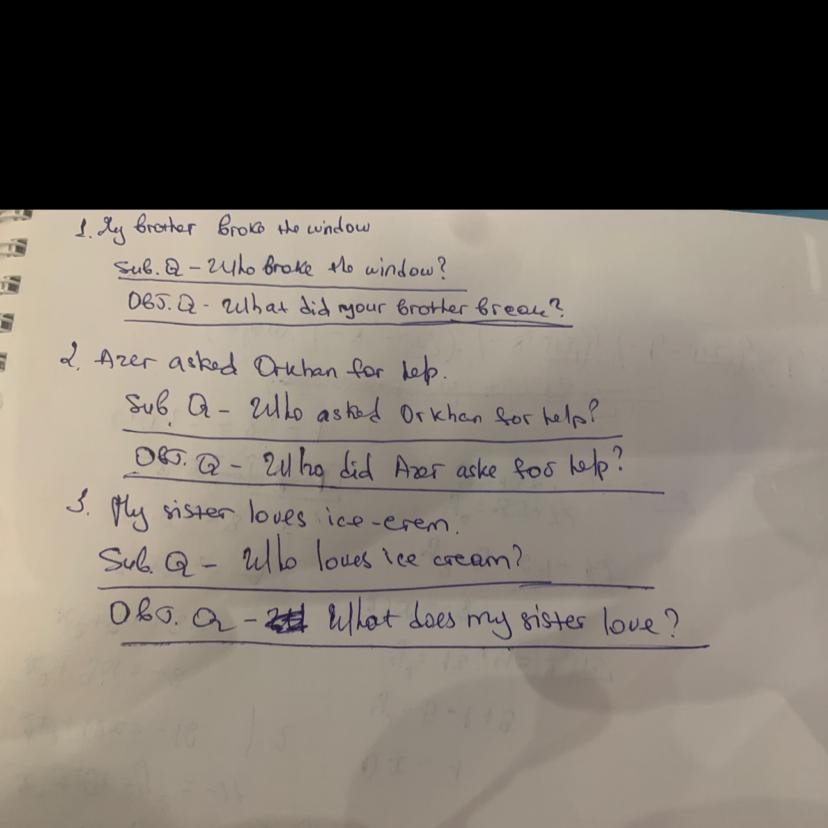 1. My brother broke the window
Sub. Q - Who broke the window?
OBJ. Q - What did your brother break?
2. Azer asked Orkhan for help.
Sub. Q - Who asked Orkhan for help?
OBJ. Q - Who did Azer aske for help?
3. My sister loves ice-erem.
Sub. Q - Who loves ice cream?
OBJ. Q - What does my sister love?